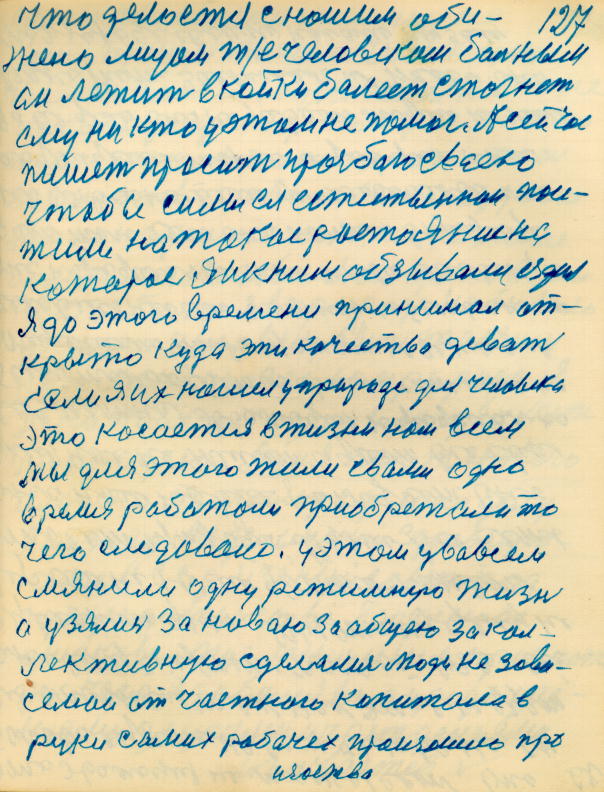 что делостя с ношим оби- 127
жено лицом т/е человеком балным
ан летит в койки балеет стогнет
ему ни кто у этом не помог. А сейчас
пишет просит прозбаю сваею
чтобы сили си естественнои пои-
тили на такое растояние на
которое я ик ним абзывали ездил
я до этого времени принимал от-
крыто куда эти качества деват
если я их нашел у природе для человека
это косается в жизни нам всем
мы для этого жили свами одно
время работали приобретали то
чего следовало. у этом у вавсем
смянили одну режимную жизн
а узялис за новаю за общею за кол-
лективную сделалис люди не зови-
семои от частного копитола в
руки самих рабочех произошло про
изоства